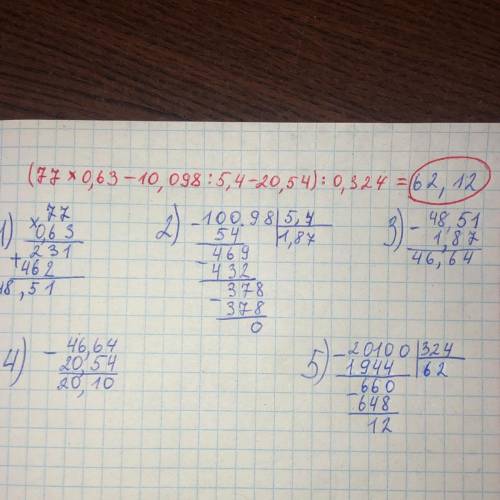 (77 × 0,63 - 10,098 : 5,4 - 20,54) : 0,324 = 62,12
1) 77
× 0,63
231
+ 462
48,51
2) - 100,98 | 5,4
54 | 1,87
469
- 432
378
- 378
0
3) - 48,51
1,87
46,64
4) - 46,64
20,54
20,10
5) - 20100 | 324
1944 | 62
- 660
648
12